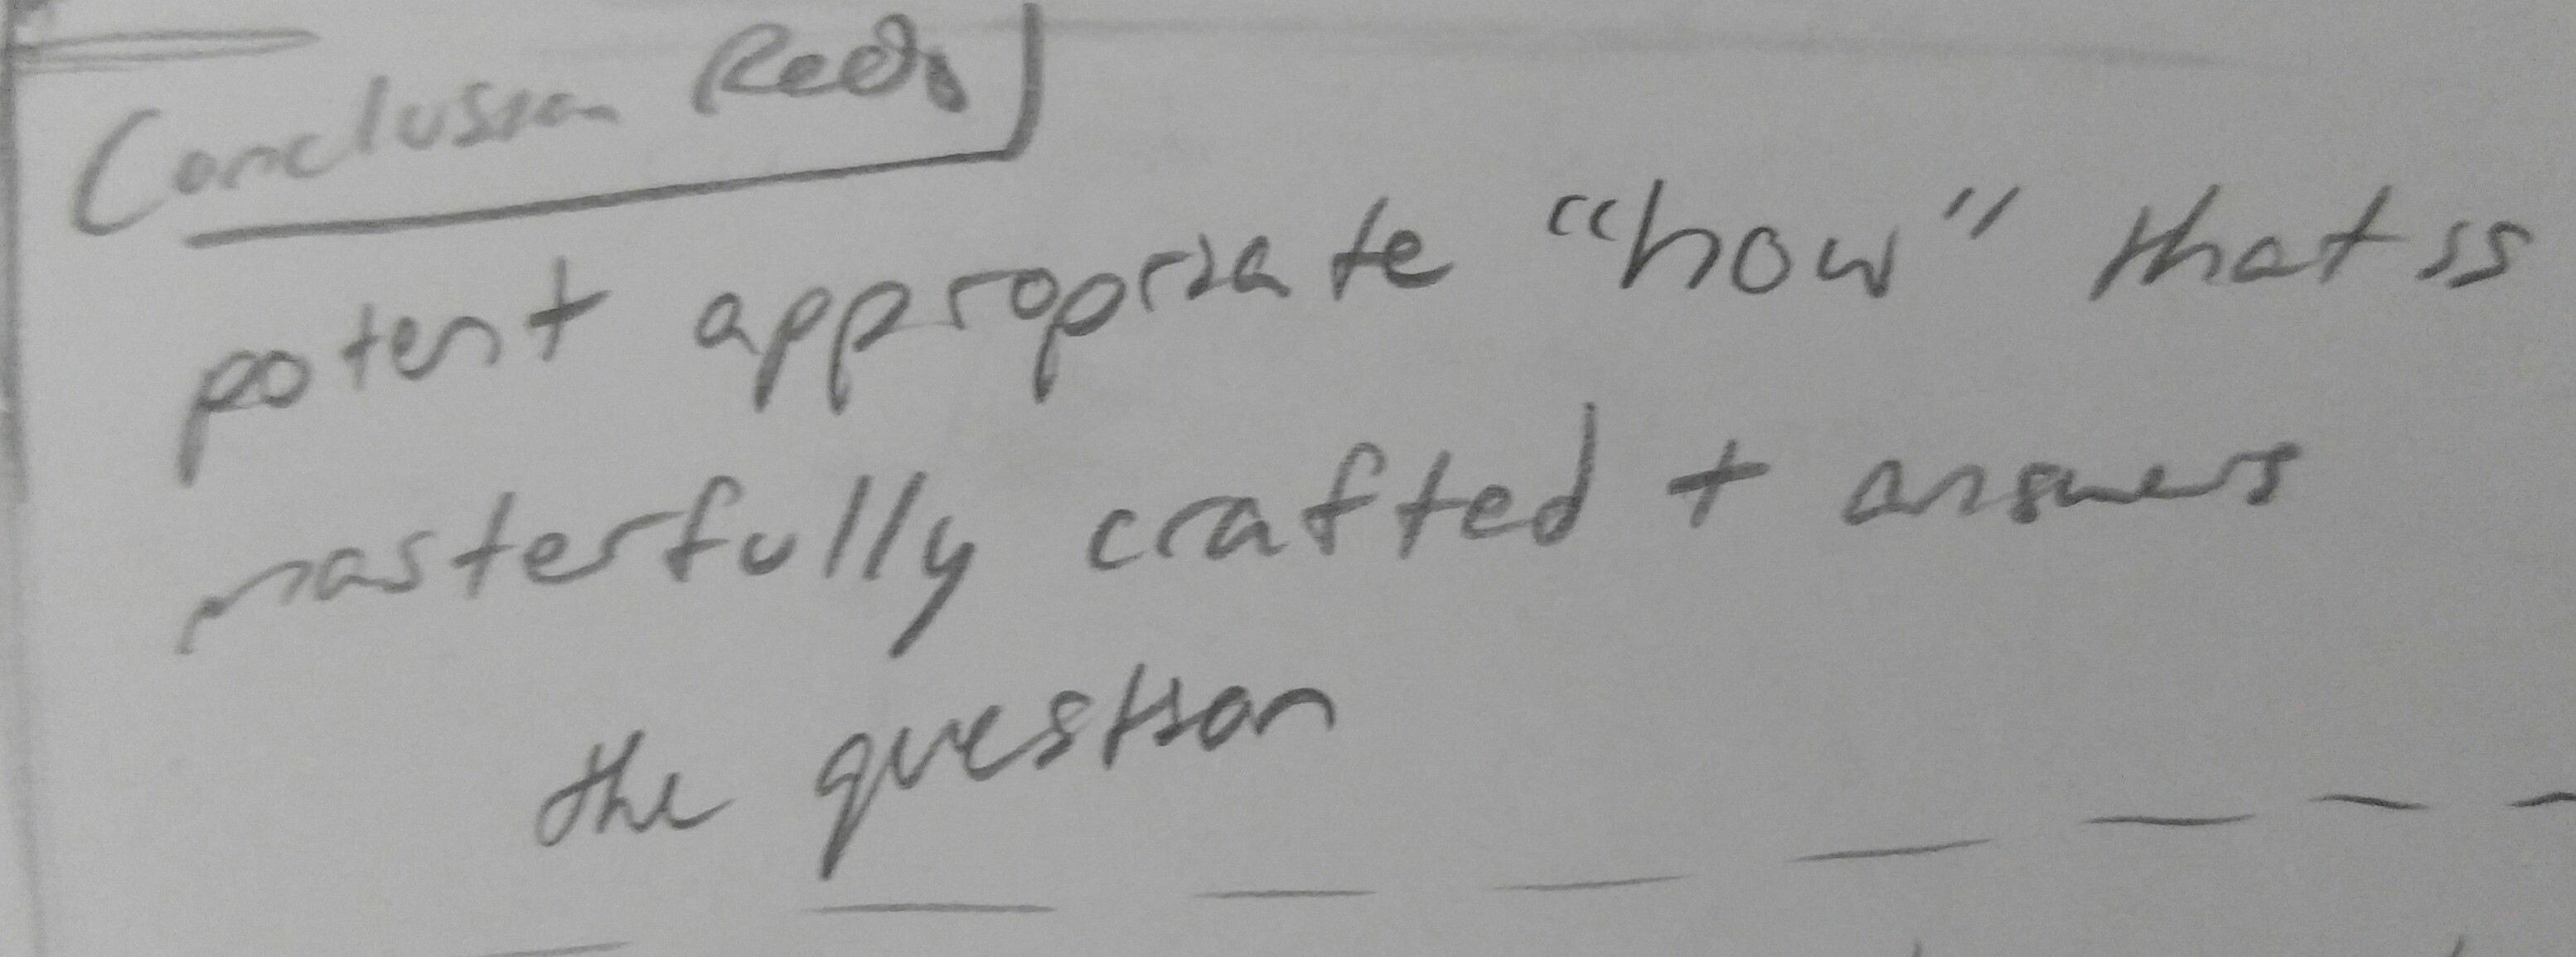 Conclusion
potent appropriate "how" that is
masterfully crafted + answers
the question